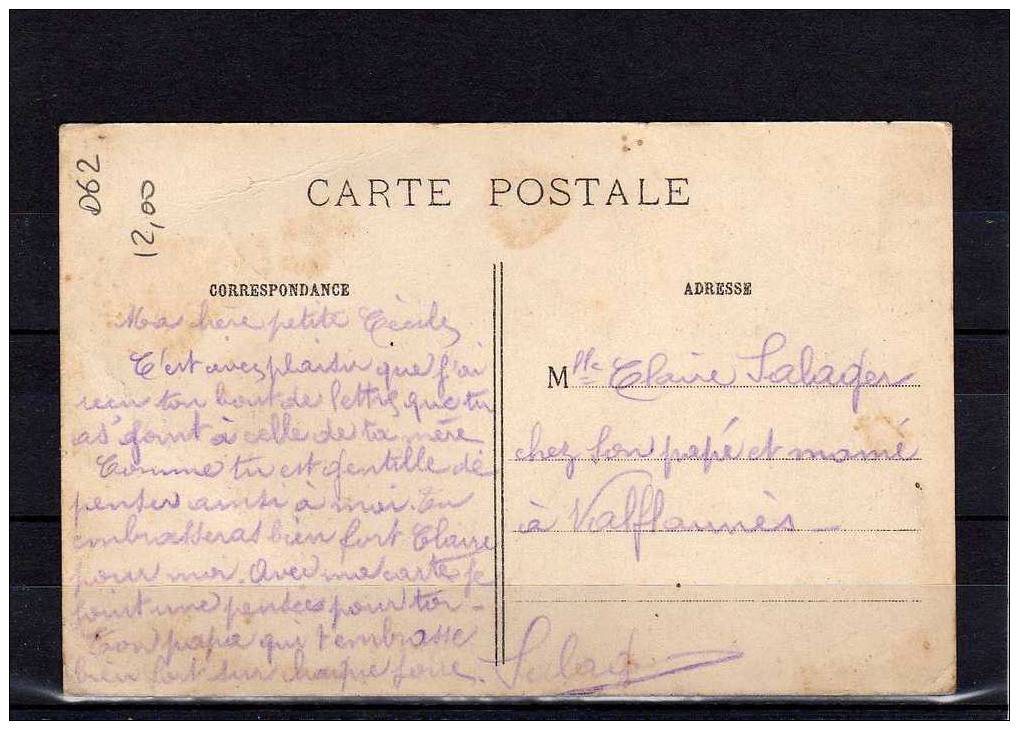 D62
12,00
CARTE POSTALE
CORRESPONDANCE
Ma chère petite Cécile,
C'est avec plaisir que j'ai
reçu ton bout de lettre que tu
as joint à celle de ta mère
Comme tu est gentille de
penser ainsi à moi. Tu
embrasseras bien fort Claire
pour moi. Avec ma carte je
joint une pensées pour toi -
Ton papa qui t'embrasse
bien fort sur chaque joue.
Salag
ADRESSE
Mlle Claire Salager
chez son papé et mamé
à Valflaunès